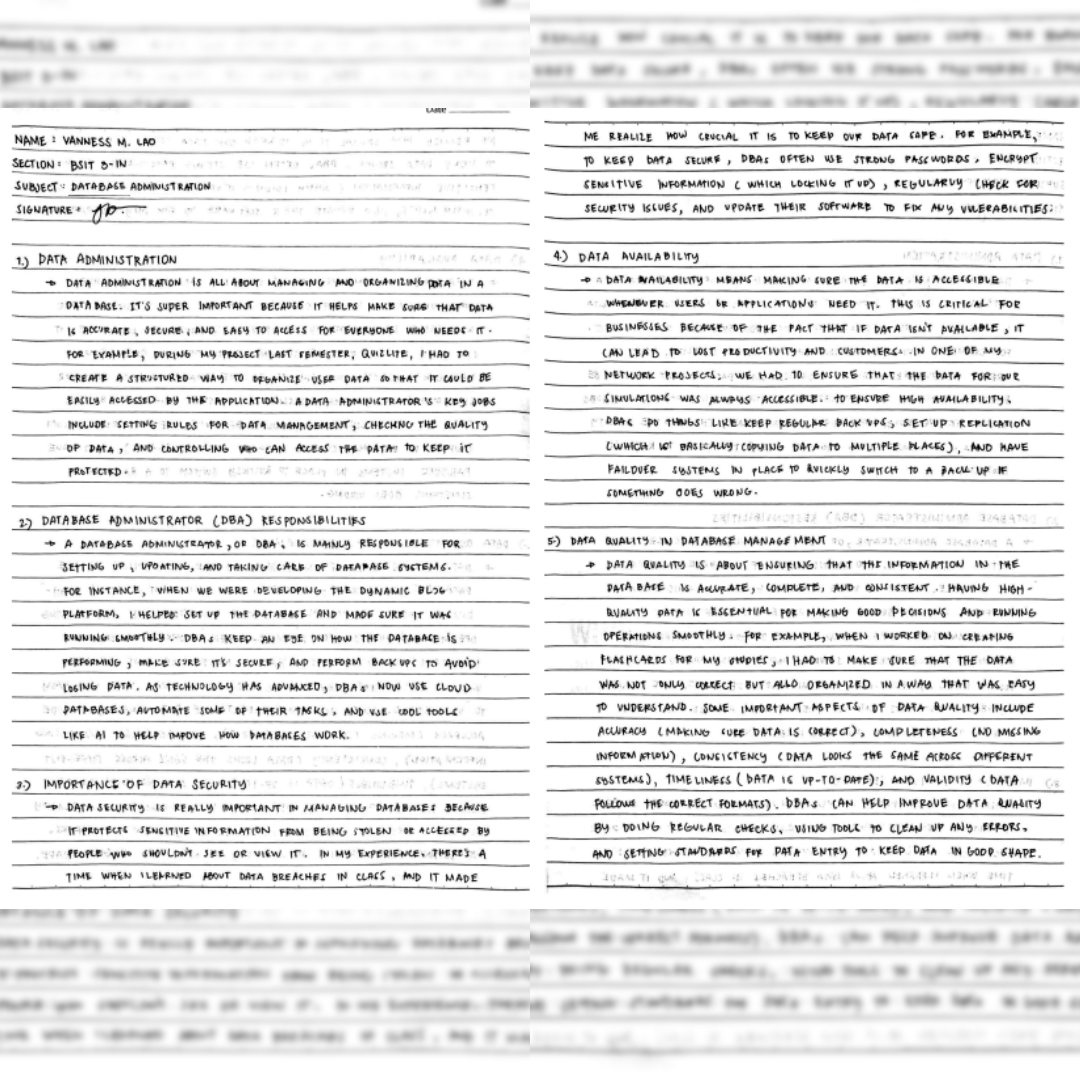 DATE:
NAME : VANNESS M. LAO
SECTION : BSIT 3-1N
SUBJECT : DATABASE ADMINISTRATION
SIGNATURE :
1.) DATA ADMINISTRATION
→ DATA ADMINISTRATION IS ALL ABOUT MANAGING AND ORGANIZING DATA IN A
DATABASE. IT'S SUPER IMPORTANT BECAUSE IT HELPS MAKE SURE THAT DATA
IS ACCURATE, SECURE, AND EASY TO ACCESS FOR EVERYONE WHO NEEDS IT.
FOR EXAMPLE, DURING MY PROJECT LAST SEMESTER, QUIZLITE, I HAD TO
CREATE A STRUCTURED WAY TO ORGANIZE USER DATA SO THAT IT COULD BE
EASILY ACCESSED BY THE APPLICATION. A DATA ADMINISTRATOR'S KEY JOBS
INCLUDE SETTING RULES FOR DATA MANAGEMENT, CHECKNG THE QUALITY
OF DATA, AND CONTROLLING WHO CAN ACCESS THE DATA TO KEEP IT
PROTECTED.
2.) DATABASE ADMINISTRATOR (DBA) RESPONSIBILITIES
→ A DATABASE ADMINISTRATOR, OR DBA, IS MAINLY RESPONSIBLE FOR
SETTING UP, UPDATING, AND TAKING CARE OF DATABASE SYSTEMS.
FOR INSTANCE, WHEN WE WERE DEVELOPING THE DYNAMIC BLOG
PLATFORM, I HELPED SET UP THE DATABASE AND MADE SURE IT WAS
RUNNING SMOOTHLY. DBAs KEEP AN EYE ON HOW THE DATABASE IS
PERFORMING, MAKE SURE IT'S SECURE, AND PERFORM BACKUPS TO AVOID
LOSING DATA. AS TECHNOLOGY HAS ADVANCED, DBAs NOW USE CLOUD
DATABASES, AUTOMATE SOME OF THEIR TASKS, AND USE COOL TOOLS
LIKE AI TO HELP IMPOVE HOW DATABASES WORK.
3.) IMPORTANCE OF DATA SECURITY
→ DATA SECURITY IS REALLY IMPORTANT IN MANAGING DATABASES BECAUSE
IT PROTECTS SENSITIVE INFORMATION FROM BEING STOLEN OR ACCESSED BY
PEOPLE WHO SHOULDN'T SEE OR VIEW IT. IN MY EXPERIENCE, THERE'S A
TIME WHEN I LEARNED ABOUT DATA BREACHES IN CLASS, AND IT MADE
ME REALIZE HOW CRUCIAL IT IS TO KEEP OUR DATA SAFE. FOR EXAMPLE,
TO KEEP DATA SECURE, DBAs OFTEN USE STRONG PASSWORDS, ENCRYPT
SENSITIVE INFORMATION (WHICH LOCKING IT UP), REGULARLY CHECK FOR
SECURITY ISSUES, AND UPDATE THEIR SOFTWARE TO FIX ANY VULERABILITIES.
4.) DATA AVAILABILITY
→ DATA AVAILABILITY MEANS MAKING SURE THE DATA IS ACCESSIBLE
WHENEVER USERS OR APPLICATIONS NEED IT. THIS IS CRITICAL FOR
BUSINESSES BECAUSE OF THE FACT THAT IF DATA ISN'T AVAILABLE, IT
CAN LEAD TO LOST PRODUCTIVITY AND CUSTOMERS. IN ONE OF MY
NETWORK PROJECTS, WE HAD TO ENSURE THAT THE DATA FOR OUR
SIMULATIONS WAS ALWAYS ACCESSIBLE. TO ENSURE HIGH AVAILABILITY,
DBAs DO THINGS LIKE KEEP REGULAR BACK UPS, SET UP REPLICATION
(WHICH IS BASICALLY COPYING DATA TO MULTIPLE PLACES), AND HAVE
FAILOVER SYSTEMS IN PLACE TO QUICKLY SWITCH TO A BACK UP IF
SOMETHING GOES WRONG.
5.) DATA QUALITY IN DATABASE MANAGEMENT
→ DATA QUALITY IS ABOUT ENSURING THAT THE INFORMATION IN THE
DATABASE IS ACCURATE, COMPLETE, AND CONSISTENT. HAVING HIGH-
QUALITY DATA IS ESSENTIAL FOR MAKING GOOD DECISIONS AND RUNNING
OPERATIONS SMOOTHLY. FOR EXAMPLE, WHEN I WORKED ON CREATING
FLASHCARDS FOR MY STUDIES, I HAD TO MAKE SURE THAT THE DATA
WAS NOT ONLY CORRECT BUT ALSO ORGANIZED IN A WAY THAT WAS EASY
TO UNDERSTAND. SOME IMPORTANT ASPECTS OF DATA QUALITY INCLUDE
ACCURACY (MAKING SURE DATA IS CORRECT), COMPLETENESS (NO MISSING
INFORMATION), CONSISTENCY (DATA LOOKS THE SAME ACROSS DIFFERENT
SYSTEMS), TIMELINESS (DATA IS UP-TO-DATE), AND VALIDITY (DATA
FOLLOWS THE CORRECT FORMATS). DBAs CAN HELP IMPROVE DATA QUALITY
BY DOING REGULAR CHECKS, USING TOOLS TO CLEAN UP ANY ERRORS,
AND SETTING STANDARDS FOR DATA ENTRY TO KEEP DATA IN GOOD SHAPE.